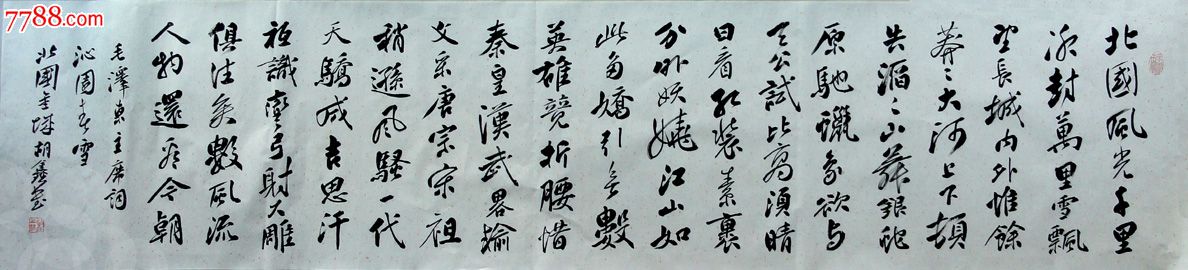 7788.com
北國風光千里
冰封萬里雪飄
望長城内外惟餘
莽々大河上下頓
失滔々山舞銀蛇
原馳蠟象欲与
天公試比高須晴
日看紅装素裹
分外妖嬈江山如
此多嬌引無數
英雄競折腰惜
秦皇漢武畧輸
文采唐宗宋祖
稍遜風騷一代
天驕成吉思汗
祗識彎弓射大雕
俱往矣數風流
人物還看今朝
毛澤東主席詞
沁園春雪
北國李 胡